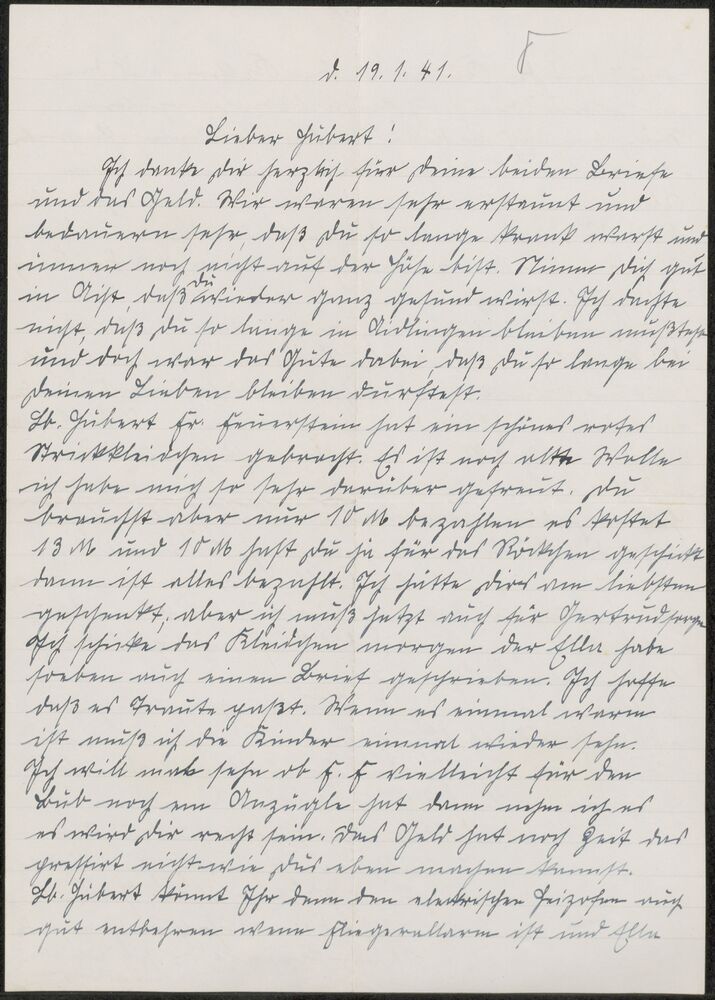 d. 19. 1. 41.
Lieber Hubert!
Ich danke Dir herzlich für Deine beiden Briefe
und das Geld. Wir waren sehr erstaunt und
bedauern sehr, daß Du so lange krank warst und
immer noch nicht auf der Höhe bist. Nimm Dich gut
in Acht, daß Du wieder ganz gesund wirst. Ich dachte
nicht, daß Du so lange in Aidlingen bleiben mußtest
und doch war das Gute dabei, daß Du so lange bei
Deinen Lieben bleiben durftest.
Lb. Hubert Fr. Feuerstein hat ein schönes rotes
Strickkleidchen gebracht. Es ist noch alte Wolle
ich habe mich so sehr darüber gefreut. Du
brauchst aber nur 10 M bezahlen es kostet
13 M und 10 M hast Du ja für das Röckchen geschickt
dann ist alles bezahlt. Ich hätte Dirs am liebsten
geschenkt, aber ich muß jetzt auch für Gertrud sorgen
Ich schicke das Kleidchen morgen der Ella habe
soeben auch einen Brief geschrieben. Ich hoffe
daß es Traute paßt. Wenn es einmal warm
ist muß ich die Kinder einmal wieder sehn.
Ich will mal sehn ob F. F vielleicht für den
Bub noch ein Anzügle hat dann nehm ich es
es wird Dir recht sein. Das Geld hat noch Zeit das
pressirt nicht wie Dus eben machen kannst.
Lb. Hubert könnt Ihr denn den elektrischen Heizofen auch
gut entbehren wenn Fliegerallarm ist und Ella